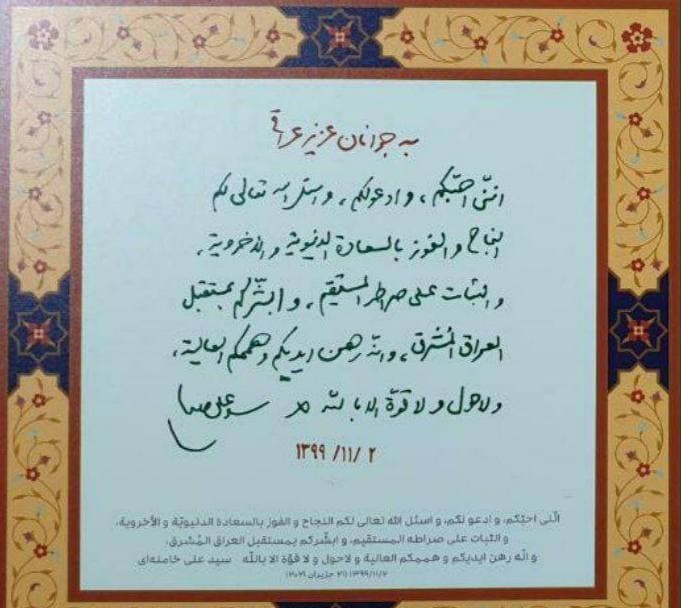 به جوانان عزیز عراقی
انّنی احبّکم، و ادعولکم، و اسئل الله تعالی لکم
النجاح و الفوز بالسعادة الدنیویة و الاخرویة،
و الثبات علی صراطه المستقیم، و ابشّرکم بمستقبل
العراق المُشرق، و انّه رهن ایدیکم و هممکم العالیة،
ولاحول و لا قوّة الا بالله سید علی خامنه‌ای
۱۳۹۹/۱۱/۲
انّنی احبّکم، و ادعو لکم، و اسئل الله تعالی لکم النجاح و الفوز بالسعادة الدنیویّة و الأخرویة،
و الثبات علی صراطه المستقیم، و ابشّرکم بمستقبل العراق المُشرق،
و انّه رهن ایدیکم و هممکم العالیة و لاحول و لا قوّة الا باللّه سید علی خامنه‌ای
۱۳۹۹/۱۱/۲ (۲۱ حزیران ۲۰۲۱)